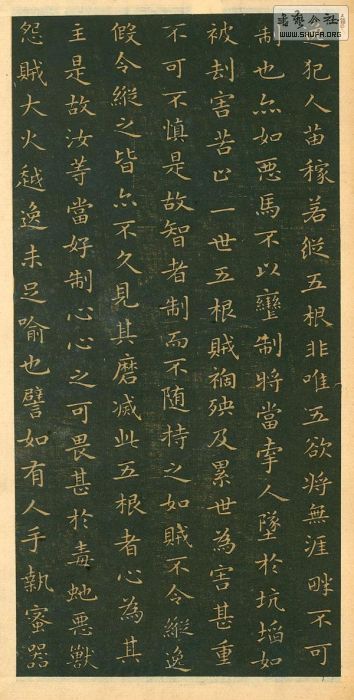 逸犯人苗稼若縱五根非唯五欲將無涯畔不可
制也亦如惡馬不以轡制將當牽人墜於坑埳如
被刦害苦止一世五根賊禍殃及累世為害甚重
不可不慎是故智者制而不隨持之如賊不令縱逸
假令縱之皆亦不久見其磨滅此五根者心為其
主是故汝等當好制心心之可畏甚於毒虵惡獸
怨賊大火越逸未足喻也譬如有人手執蜜器
书艺公社
WWW.SHUFA.ORG